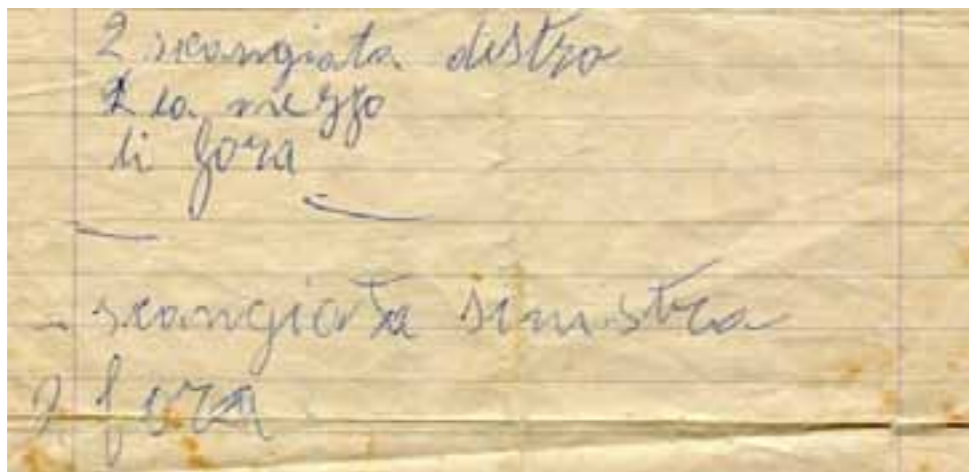 2 scangiata distra
2 in mezzo
di fora
scangiata sinistra
2 fora